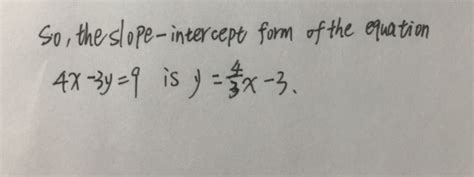 So, the slope-intercept form of the equation
4x-3y=9 is y=4/3x-3.